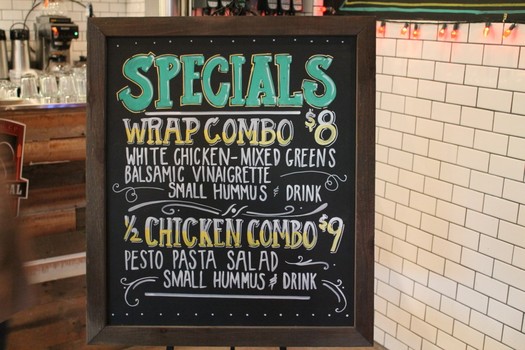 SPECIALS
WRAP COMBO $8
WHITE CHICKEN - MIXED GREENS
BALSAMIC VINAIGRETTE
SMALL HUMMUS & DRINK
½ CHICKEN COMBO $9
PESTO PASTA SALAD
SMALL HUMMUS & DRINK